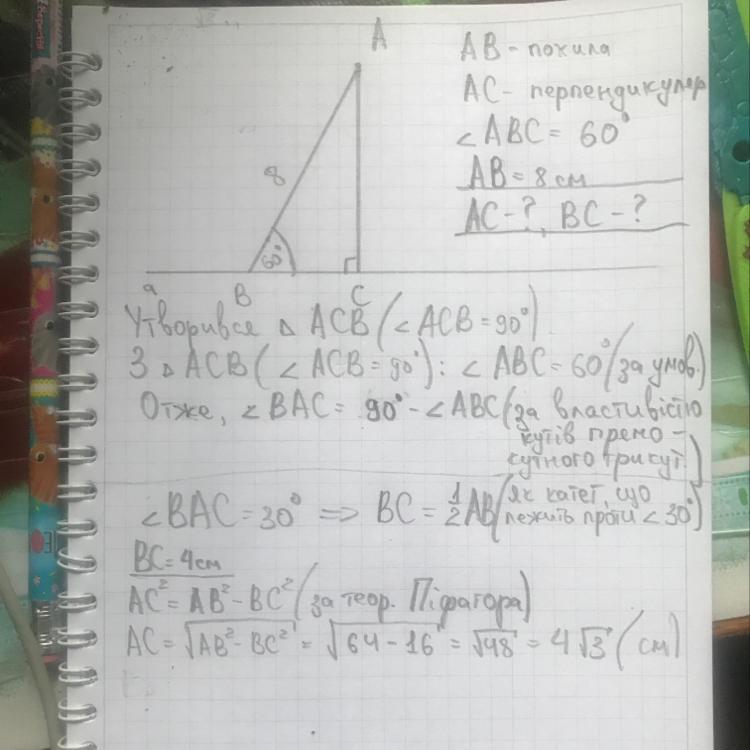 A
AB - похила
AC - перпендикуляр
∠ABC = 60°
8
AB = 8 см
AC - ?, BC - ?
60°
a B C
Утворився △ ACB (∠ACB = 90°)
З △ ACB (∠ACB = 90°): ∠ABC = 60° (за умов.)
Отже, ∠BAC = 90° - ∠ABC (за властивістю
кутів прямо -
кутного трикут.)
∠BAC = 30° => BC = 1/2 AB (як катет, що
лежить проти ∠30°)
BC = 4 см
AC² = AB² - BC² (за теор. Піфагора)
AC = √AB² - BC² = √64 - 16 = √48 = 4√3 (см)